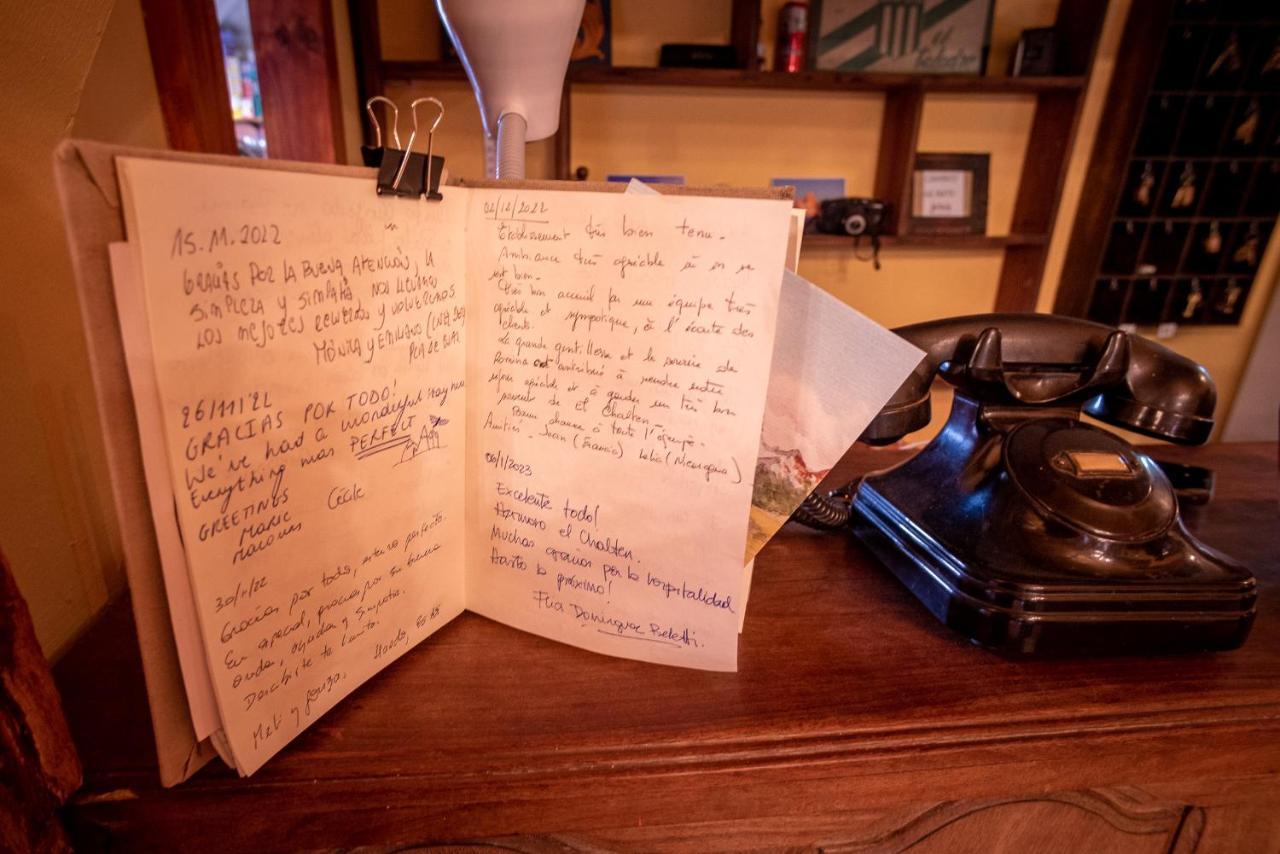 15.11.2022
GRACIAS POR LA BUENA ATENCIÓN, LA
SIMPLEZA Y SIMPATÍA, NOS LLEVAMOS
LOS MEJORES RECUERDOS Y VOLVEREMOS
MÓNICA Y EMILIANO
26/11/22
GRACIAS POR TODO!
We've had a wonderful stay here
Everything was PERFECT
GREETINGS
MARIE Cécile
30/11/22
Gracias por todo, estuvo perfecto.
En especial, gracias por su buena
onda, ayudas y simpatía.
Mati y Gonza.
02/12/2022
Etablissement très bien tenu.
Ambiance très agréable où on se
sent bien.
Très bon accueil par une équipe très
agréable et sympatique, à l'écoute des
clients.
La grande gentillesse et le sourire de
Romina ont contribué à rendre notre
séjour agréable et à garder un très bon
souvenir de el Chalten.
Bonne chance à toute l'équipe.
Amitiés. Jean (Francia) (Nicaragua)
06/1/2023
Excelente todo!
Hermoso el Chalten.
Muchas gracias por la hospitalidad
Hasta la próxima!